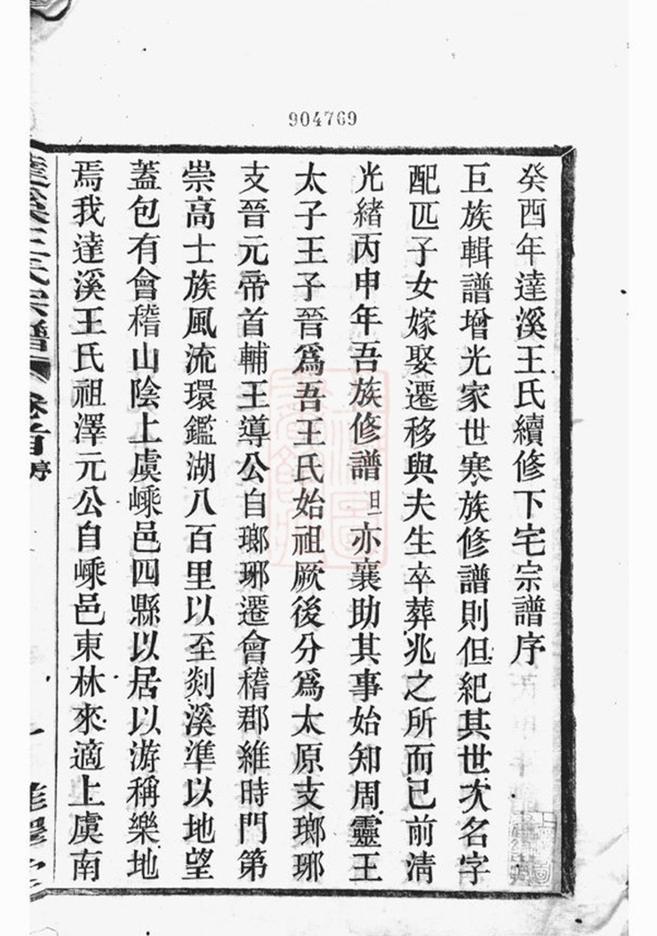 904769
癸酉年達溪王氏續修下宅宗譜序
巨族輯譜增光家世寒族修譜則但紀其世次名字
配匹子女嫁娶遷移與夫生卒葬兆之所而已前清
光緒丙申年吾族修譜日亦襄助其事始知周靈王
太子王子晉爲吾王氏始祖厥後分爲太原支瑯琊
支晉元帝首輔王導公自瑯琊遷會稽郡維時門第
崇高士族風流環鑑湖八百里以至剡溪準以地望
蓋包有會稽山陰上虞嵊邑四縣以居以游稱樂地
焉我達溪王氏祖澤元公自嵊邑東林來適上虞南
達溪王氏宗譜 卷首 序